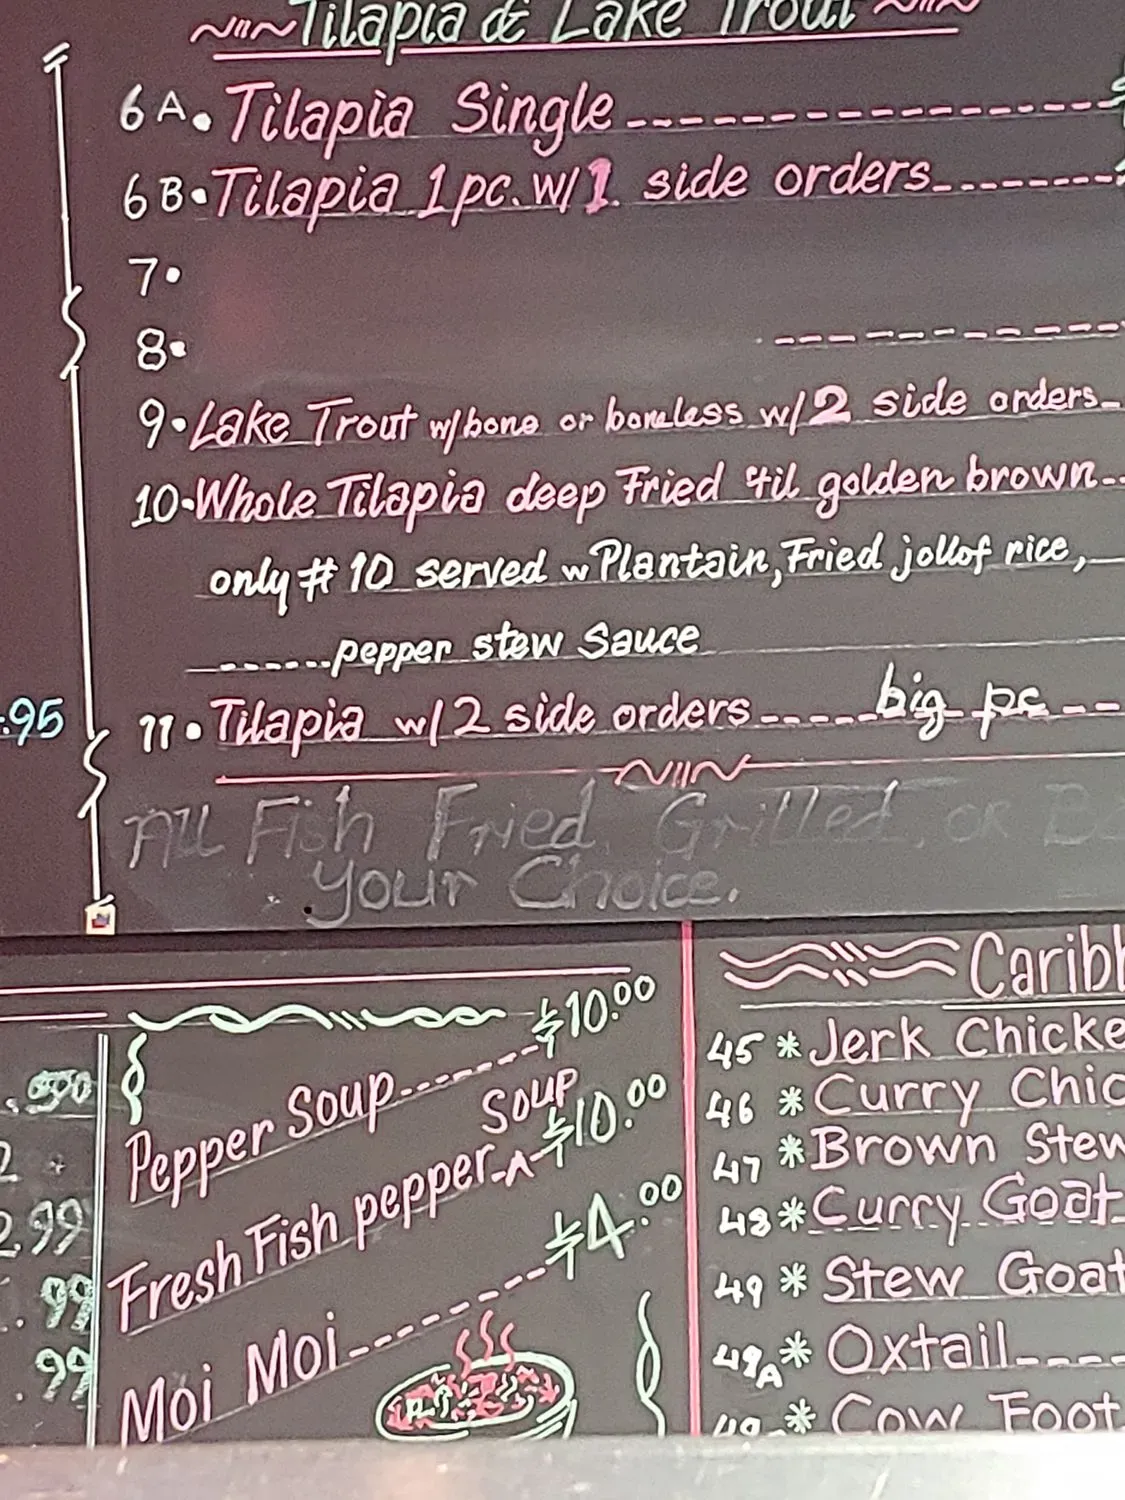 Tilapia & Lake Trout
6 A. Tilapia Single
6 B. Tilapia 1 pc. w/ 1 side orders
7.
8.
9. Lake Trout w/bone or boneless w/ 2 side orders
10. Whole Tilapia deep Fried 'til golden brown
only # 10 served w Plantain, Fried jollof rice,
pepper stew Sauce
11. Tilapia w/ 2 side orders big pc
.95
All Fish Fried, Grilled, or
Your Choice.
Pepper Soup $10.00
Fresh Fish pepper SOUP $10.00
Moi Moi $4.00
2.99
.99
.99
Caribb
45 * Jerk Chicke
46 * Curry Chic
47 * Brown Stew
48 * Curry Goat
49 * Stew Goat
49A * Oxtail
49 * Cow Foot